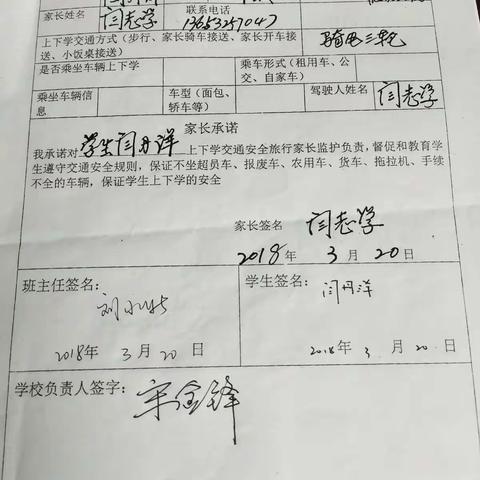 家长姓名 闫志学 联系电话 13653257047
上下学交通方式（步行、家长骑车接送、家长开车接送、小饭桌接送） 骑电三轮
是否乘坐车辆上下学 乘车形式（租用车、公交、自家车）
乘坐车辆信息 车型（面包、轿车等） 驾驶人姓名 闫志学
家长承诺
我承诺对 学生闫丹洋 上下学交通安全旅行家长监护负责，督促和教育学
生遵守交通安全规则，保证不坐超员车、报废车、农用车、货车、拖拉机、手续
不全的车辆，保证学生上下学的安全
家长签名 闫志学
2018年 3月 20日
班主任签名： 学生签名：
刘 闫丹洋
2018年 3月20日 2018年 3月20日
学校负责人签字： 宋金锋